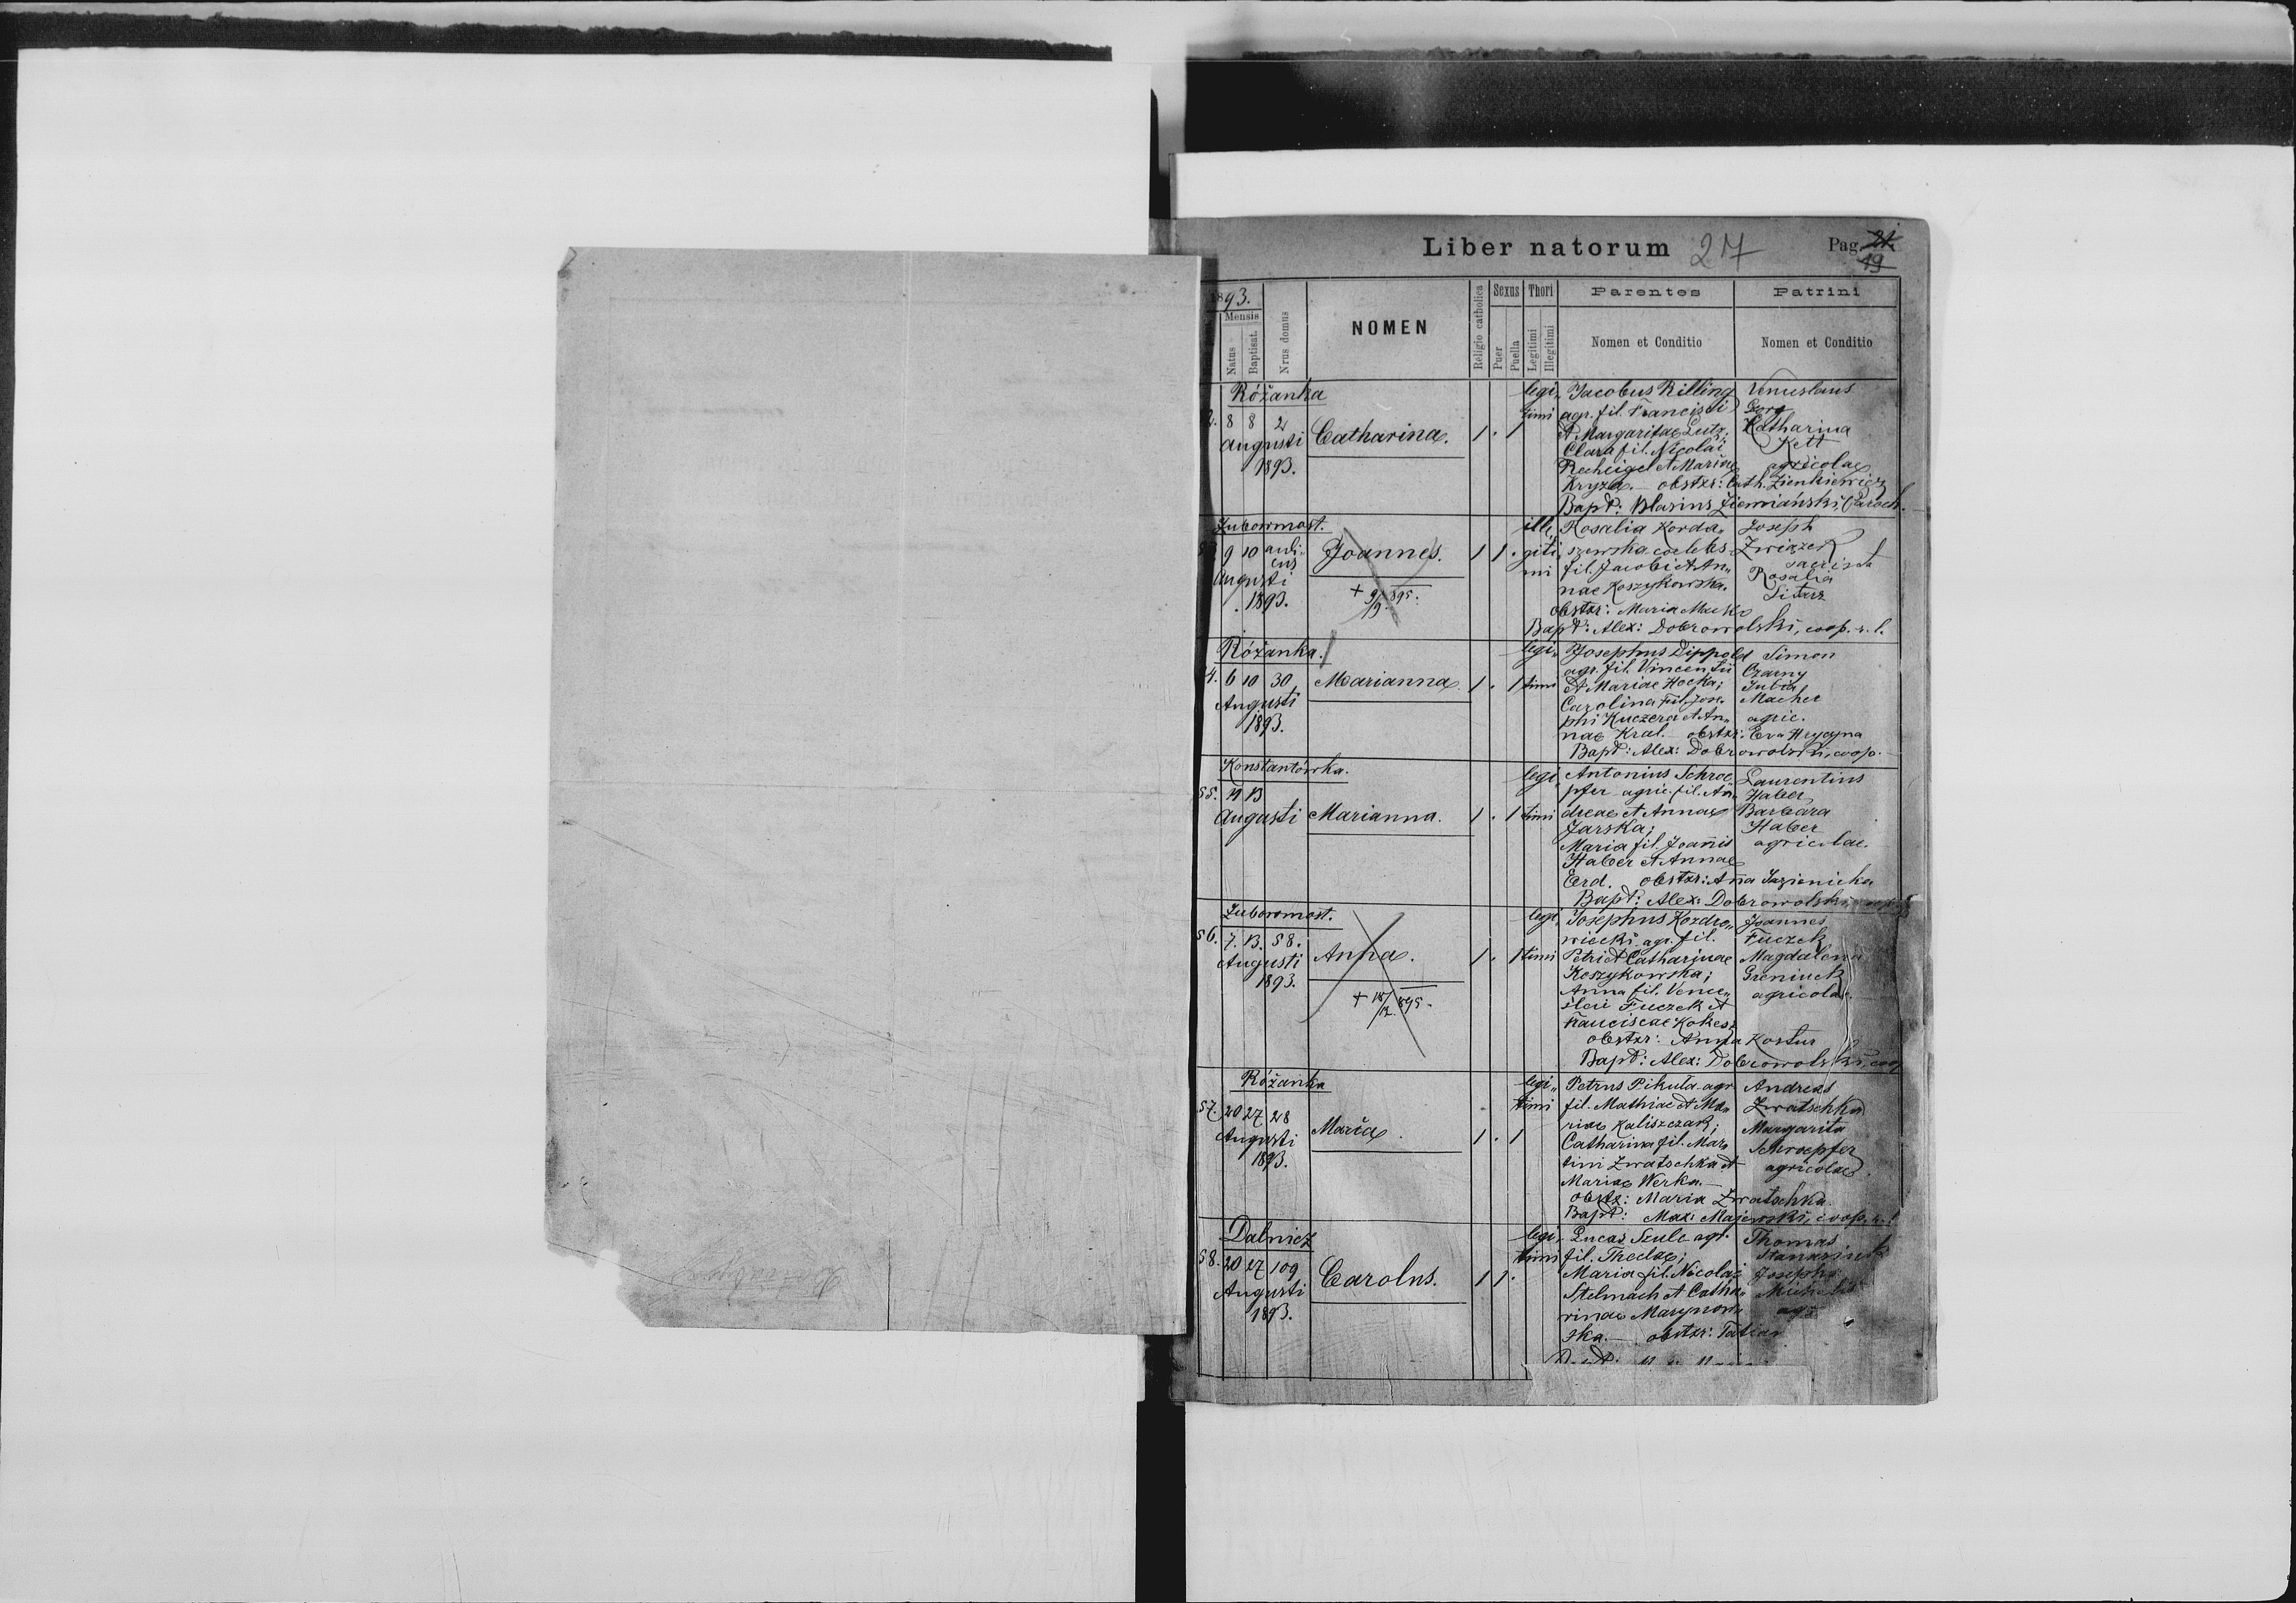 Liber natorum 27 Pag. 21
19
1893.
Mensis
Natus
Baptisat.
Nrus domus
NOMEN
Religio catholica
Sexus
Puer
Puella
Thori
Legitimi
Illegitimi
Parentes
Nomen et Conditio
Patrini
Nomen et Conditio
Różanka
8 8 2
Augusti
1893.
Catharina.
1 . 1
legi„
timi
Jacobus Rilling
agr. fil. Francisci
et Margaritae Lutz;
Clara fil. Nicolai
Recheigel et Mariae
Kryza. – obstxr: Cath. Zienkiewicz
Bapt: Blasius Ziemiański, Paroch.
Venceslaus
Catharina
Kett
agricolae
Żubowmost.
9 10 auli„
cus
Augusti
1893.
Joannes.
+ 9/9 895.
1 1 .
ille„
giti„
mi
Rosalia Korda„
szewska coelebs
fil. Jacobi et An„
nae Koszykowska.
obstxr: Maria Macko
Bapt: Alex: Dobrowolski, coop. r. l.
Joseph
Związek
Rosalia
Sitarz
Różanka.
4. 6 10 30
Augusti
1893.
Marianna
1 . 1
legi„
timi
Josephus Dippold
agr. fil. Vincentii
et Mariae Hocka;
Carolina fil. Jose„
phi Kuczera et An„
nae Kral. – obstxr: Eva Hrycyna
Bapt: Alex: Dobrowolski, coop.
Simon
Czarny
Julia
Macher
agric.
Konstantówka.
55. 11 13
Augusti
Marianna.
1 . 1
legi„
timi
Antonius Schroe„
pfer agric. fil. An„
dreae et Annae
Jarska;
Maria fil. Joannis
Haber et Annae
Erd. obstxr: Anna Jazienicka
Bapt: Alex: Dobrowolski
Laurentius
Haber,
Barbara
Haber
agricolae.
Żubowmost.
56. 7. 13. 58.
Augusti
1893.
Anna.
+ 18/12 895.
1 . 1
legi„
timi
Josephus Kozdro„
wiecki agr. fil.
Petri et Catharinae
Koszykowska;
Anna fil. Vence„
slai Fuczek et
Franciscae Kokesz
obstxr: Anna Kostur
Bapt: Alex: Dobrowolski, coop
Joannes
Fuczek
Magdalena
Greniuck
agricolae.
Różanka
57. 20 27 28
Augusti
1893.
Maria.
1 . 1
legi„
timi
Petrus Pikuła agr
fil. Mathiae et Ma„
riae Kaliszczak;
Catharina fil. Mar„
tini Zwatschka et
Mariae Werka. –
obstx: Maria Zwatschka.
Bapt: Max: Majewski, coop. r. l.
Andreas
Zwatschka
Margarita
Schroepfer
agricolae.
Dalnicz
58. 20 27 109
Augusti
1893.
Carolus.
1 1 .
legi„
timi
Lucas Szulc agr.
fil. Theclae;
Maria fil. Nicolai
Stelmach et Catha„
rinae Marynow„
ska. – obstxr: Tatian
Thomas
Josepha
agr